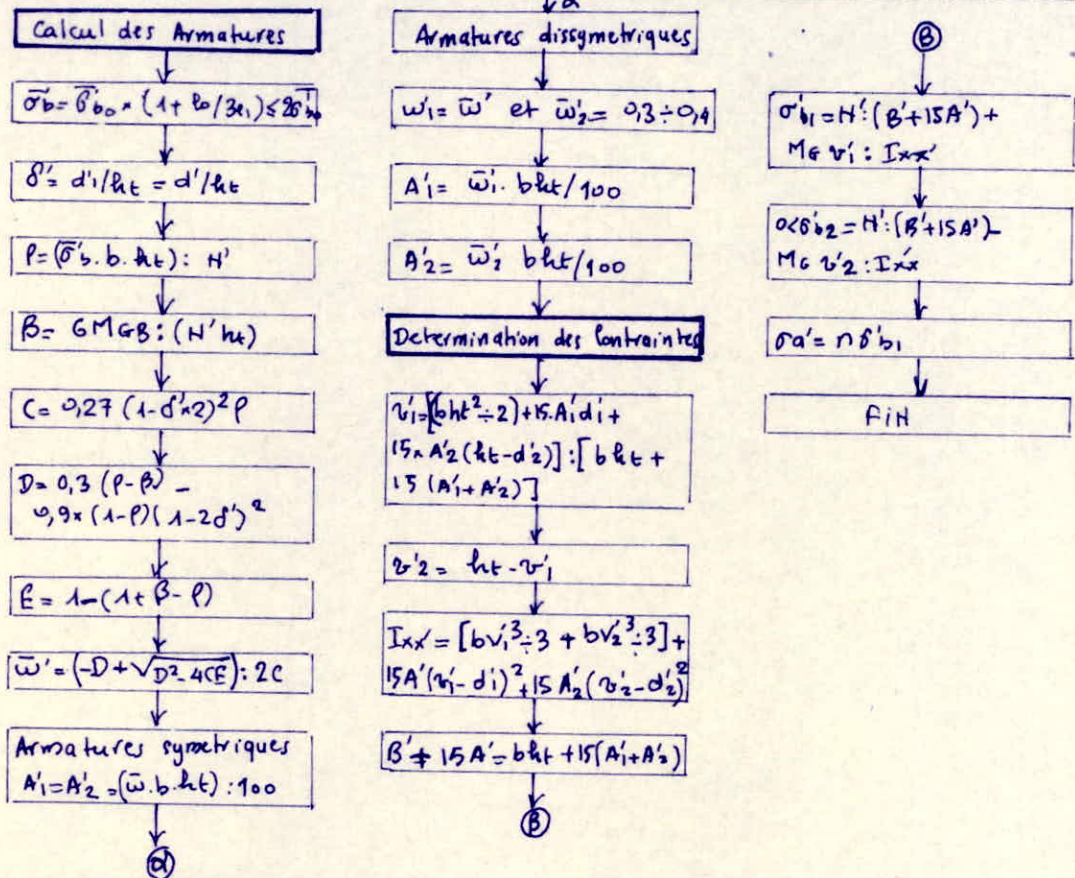 Calcul des Armatures
σ̄b = σ̄'b₀ × (1 + l₀/3e₁) ≤ 2σ̄'b₀
δ' = d'₁/ht = d'/ht
ρ = (σ̄'b. b. ht) : N'
β = 6MGB : (N' ht)
C = 0,27 (1-δ'×2)² ρ
D = 0,3 (ρ-β) –
0,9× (1-ρ)(1-2δ')²
E = 1-(1+β-ρ)
ω̄' = (-D + √D²-4CE) : 2C
Armatures symetriques
A'₁ = A'₂ = (ω̄.b.ht) : 100
α
α
Armatures dissymetriques
ω'₁ = ω̄' et ω̄'₂ = 0,3 ÷ 0,4
A'₁ = ω̄'₁. bht/100
A'₂ = ω̄'₂ bht/100
Determination des Contraintes
v'₁ = [(bht² ÷ 2) + 15.A'₁d'₁ +
15× A'₂ (ht-d'₂)] : [bht +
15 (A'₁+A'₂)]
v'2 = ht - v'₁
Ixx' = [bv'₁³ ÷ 3 + bv'₂³ ÷ 3] +
15A'(v'₁- d'₁)² + 15 A'₂ (v'₂-d'₂)²
B' + 15 A' = bht + 15(A'₁+A'₂)
B
B
σ'b₁ = N' : (B'+15A') +
MG v'₁ : Ixx'
0<σ'b2 = N' : (B'+15A') –
MG v'2 : Ixx'
σa' = nσ'b₁
FiN